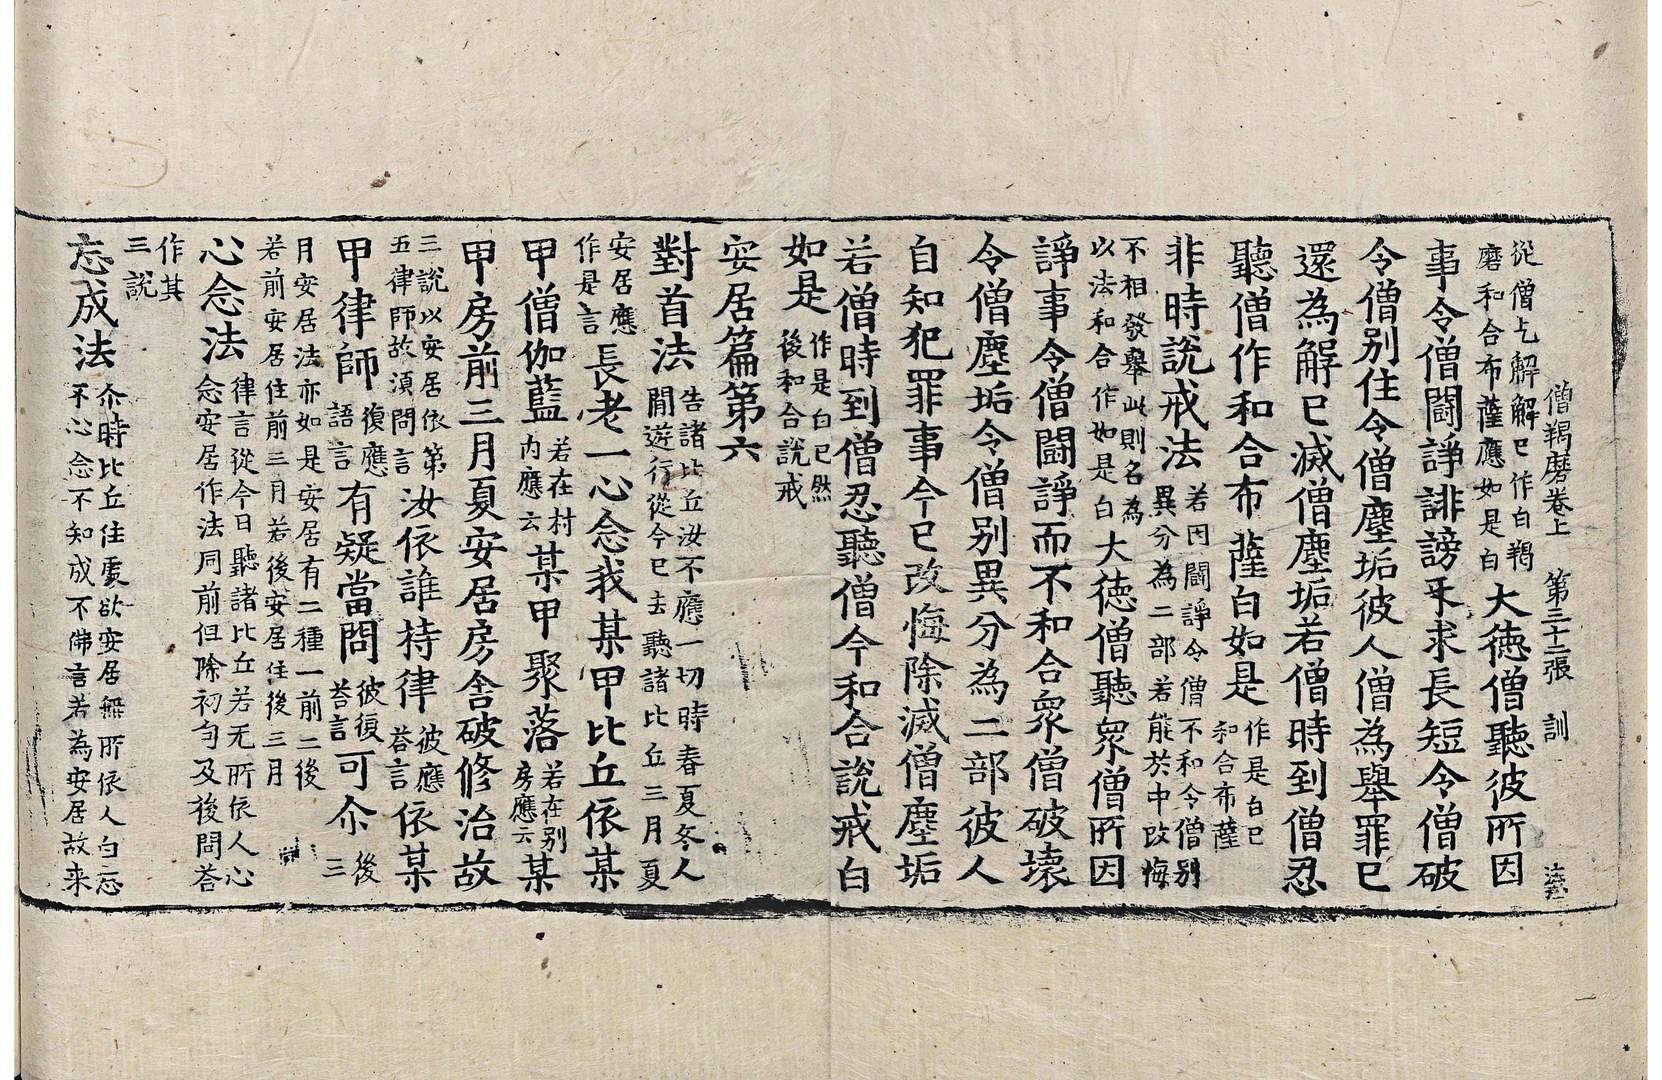 僧羯磨卷上 第三十二張 訓
從僧乞解解已作白羯
磨和合布薩應如是白
大德僧聽彼所因
事令僧鬪諍誹謗 求長短令僧破
令僧別住令僧塵垢彼人僧為舉罪已
還為解已滅僧塵垢若僧時到僧忍
聽僧作和合布薩白如是
作是白已
和合布薩
非時說戒法
若因鬪諍令僧不和令僧別
異分為二部若能於中改悔
不相發舉此則名為
以法和合作如是白
大德僧聽眾僧所因
諍事令僧鬪諍而不和合眾僧破壞
令僧塵垢令僧別異分為二部彼人
自知犯罪事今已改悔除滅僧塵垢
若僧時到僧忍聽僧今和合說戒白
如是
作是白已然
後和合說戒
安居篇第六
對首法
告諸比丘汝不應一切時春夏冬人
間遊行從今已去聽諸比丘三月夏
安居應
作是言
長老一心念我某甲比丘依某
甲僧伽藍
若在村
內應云
某甲聚落
若在別
房應云
某
甲房前三月夏安居房舍破修治故
三說以安居依第
五律師故須問言
汝依誰持律
彼應
答言
依某
甲律師
復應
語言
有疑當問
彼復
答言
可尒
後
三
月安居法亦如是安居有二種一前二後
若前安居住前三月若後安居住後三月
心念法
律言從今日聽諸比丘若无所依人心
念安居作法同前但除初句及後問答
作其
三說
忘成法
尒時比丘住處欲安居無所依人白忘
不心念不知成不佛言若為安居故来